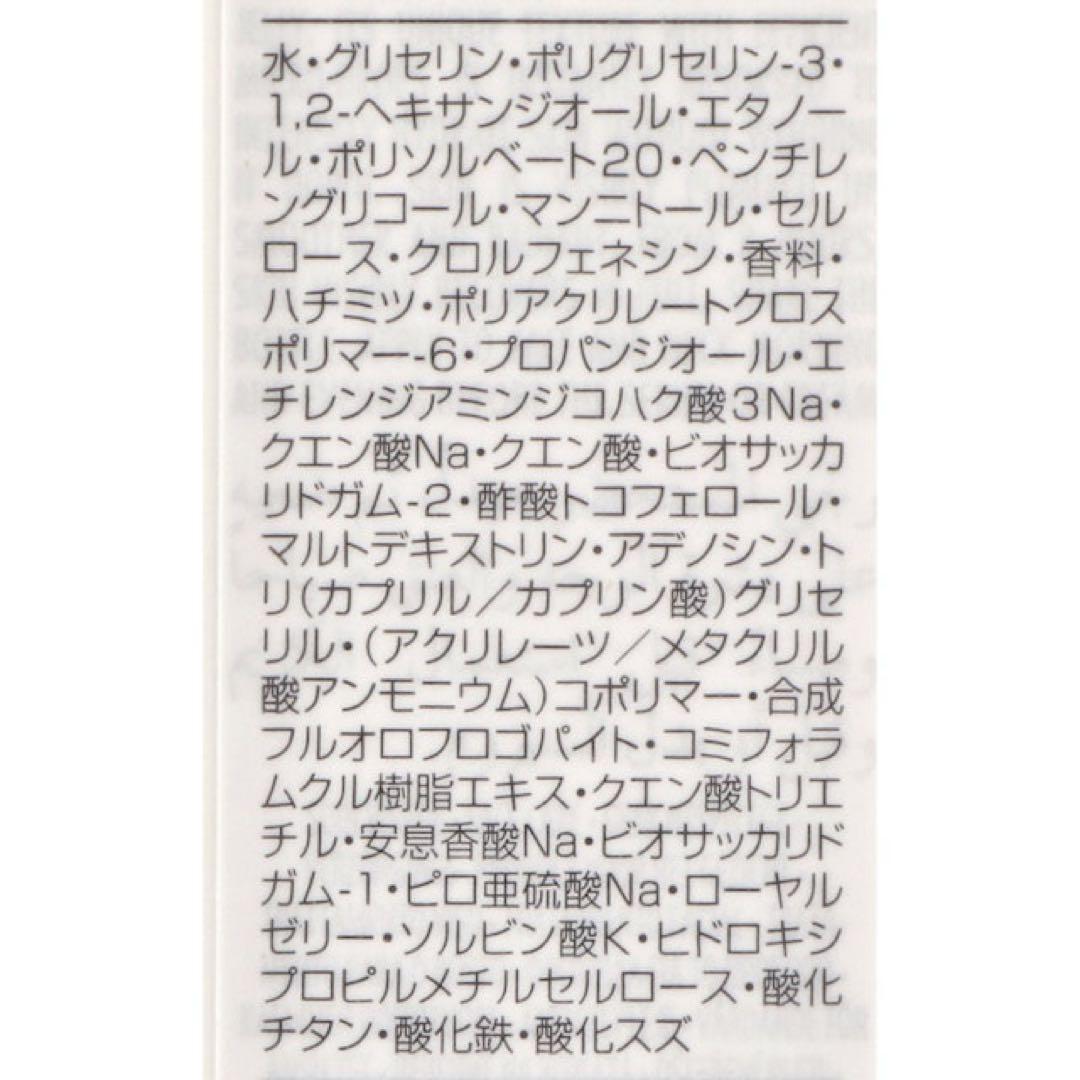 水・グリセリン・ポリグリセリン-3・
1,2-ヘキサンジオール・エタノー
ル・ポリソルベート20・ペンチレ
ングリコール・マンニトール・セル
ロース・クロルフェネシン・香料・
ハチミツ・ポリアクリレートクロス
ポリマー-6・プロパンジオール・エ
チレンジアミンジコハク酸3Na・
クエン酸Na・クエン酸・ビオサッカ
リドガム-2・酢酸トコフェロール・
マルトデキストリン・アデノシン・ト
リ(カプリル／カプリン酸)グリセ
リル・(アクリレーツ／メタクリル
酸アンモニウム)コポリマー・合成
フルオロフロゴパイト・コミフォラ
ムクル樹脂エキス・クエン酸トリエ
チル・安息香酸Na・ビオサッカリド
ガム-1・ピロ亜硫酸Na・ローヤル
ゼリー・ソルビン酸K・ヒドロキシ
プロピルメチルセルロース・酸化
チタン・酸化鉄・酸化スズ